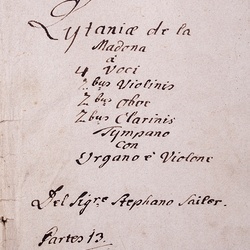 Lytaniæ de la
Madona
à
4 Voci
2bus Violinis
2bus Oboe
2bus Clarinis
Tympano
con
Organo è Violone
Del Sigre Stephano Sailer.
Partes 13.